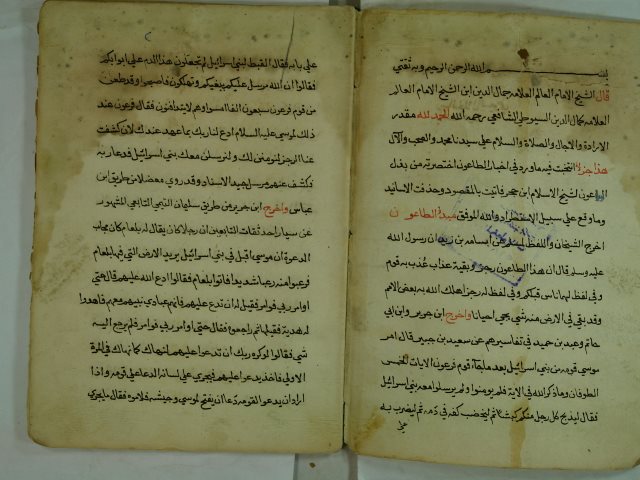 بسم الله الرحمن الرحيم وبه ثقتي
قال الشيخ الامام العالم العلامه جمال الدين ابن الشيخ الامام العالم
العلامه كمال الدين السيوطي الشافعي رحمه الله الحمد لله مقدر
الارادة والاجال والصلاة والسلام على سيدنا محمد والصحب والآل
هذا جزء التخت فيه ما ورد في اخبار الطاعون اختصرته من بذل
الماعون لشيخ الاسلام ابن حجر فاتيت بالمقصود وحذفت الاسانيد
وما وقع على سبيل الاستطراد والله الموفق مبدأ الطاعون
اخرج الشيخان واللفظ لمسلم عن اسامه بن زيد ان رسول الله
عليه وسلم قال ان هذا الطاعون رجز وبقية عذاب عذب به قوم
وفي لفظ لهما ناس قبلكم وفي لفظ له رجز اهلك الله به بعض الامم
وقد بقي في الارض منه شي يجي احيانا واخرج ابن جرير وابن ابي
حاتم وعبد بن حميد في تفاسيرهم عن سعيد بن جبير قال امر
موسى قومه من بني اسرائيل بعد ما جاء قوم فرعون الايات الخمس
الطوفان وما ذكر الله في الاية فلم يومنوا ولم يرسلوا معه بني اسرائيل
فقال ليذبح كل رجل منكم كبشا ثم ليخضب كفه في دمه ثم ليضرب به
على
على بابه فقال القبط لبني اسرائيل لم تجعلون هذا الدم على ابوابكم
فقالوا ان الله مرسل عليكم ونهلكون فاصبحوا وقد طعن
من قوم فرعون سبعون الفا فامسوا وهم لا يتدافنون فقال فرعون عند
ذلك لموسى عليه السلام ادع لنا ربك بما عهد عندك لان كشفت
عنا الرجز لنومنن لك ولنرسلن معك بني اسرائيل فدعا ربه
فكشف عنهم مرسل جيد الاسناد وقد روي معضلا من طريق ابن
عباس واخرج ابن جرير من طريق سليمان التيمي التابعي المشهور
عن سيار احد ثقات التابعين ان رجلا كان يقال له بلعام كان مجاب
الدعوة ان موسى اقبل في بني اسرائيل يريد الارض التي فيها بلعام
فرعبوا منه رعبا شديدا فاتوا بلعام فقالوا ادع الله عليهم قال حتى
اوامر ربي فوامر فقيل له لا تدع عليهم فانهم عبادي نبيهم معهم فاهدوا
له هدية فقبلها ثم راجعوه فقال حتى اوامر ربي فوامر فلم يرجع اليه
شي فقالوا لو كره ربك ان تدعو عليهم لنهاك كما نهاك في المرة
الاولى فاخذ يدعو عليهم فيجري على لسانه الدعا على قومه واذا
اراد ان يدعو لقومه دعا ان يفتح لموسى وجيشه فلاموه فقال ما يجري